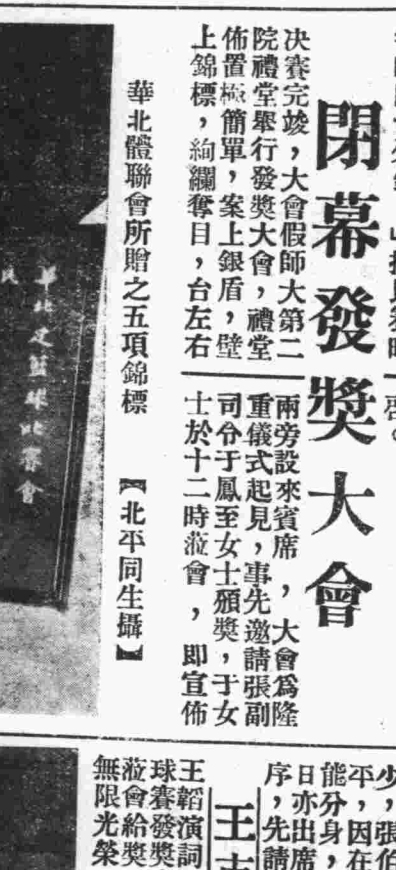 閉幕發獎大會
决賽完竣，大會假師大第二
院禮堂舉行發獎大會，禮堂
佈置極簡單，案上銀盾，壁
上錦標，絢斕奪目，台左右
兩旁設來賓席，大會爲隆
重儀式起見，事先邀請張副
司令于鳳至女士頒獎，于女
士於十二時蒞會，即宣佈
華北體聯會所贈之五項錦標
【北平同生攝】
華北足籃球比賽會
少，張伯
平，因在
能分身，
日亦出席
序，先請
王
王韜演詞
球賽發獎
蒞會給獎
無限光榮